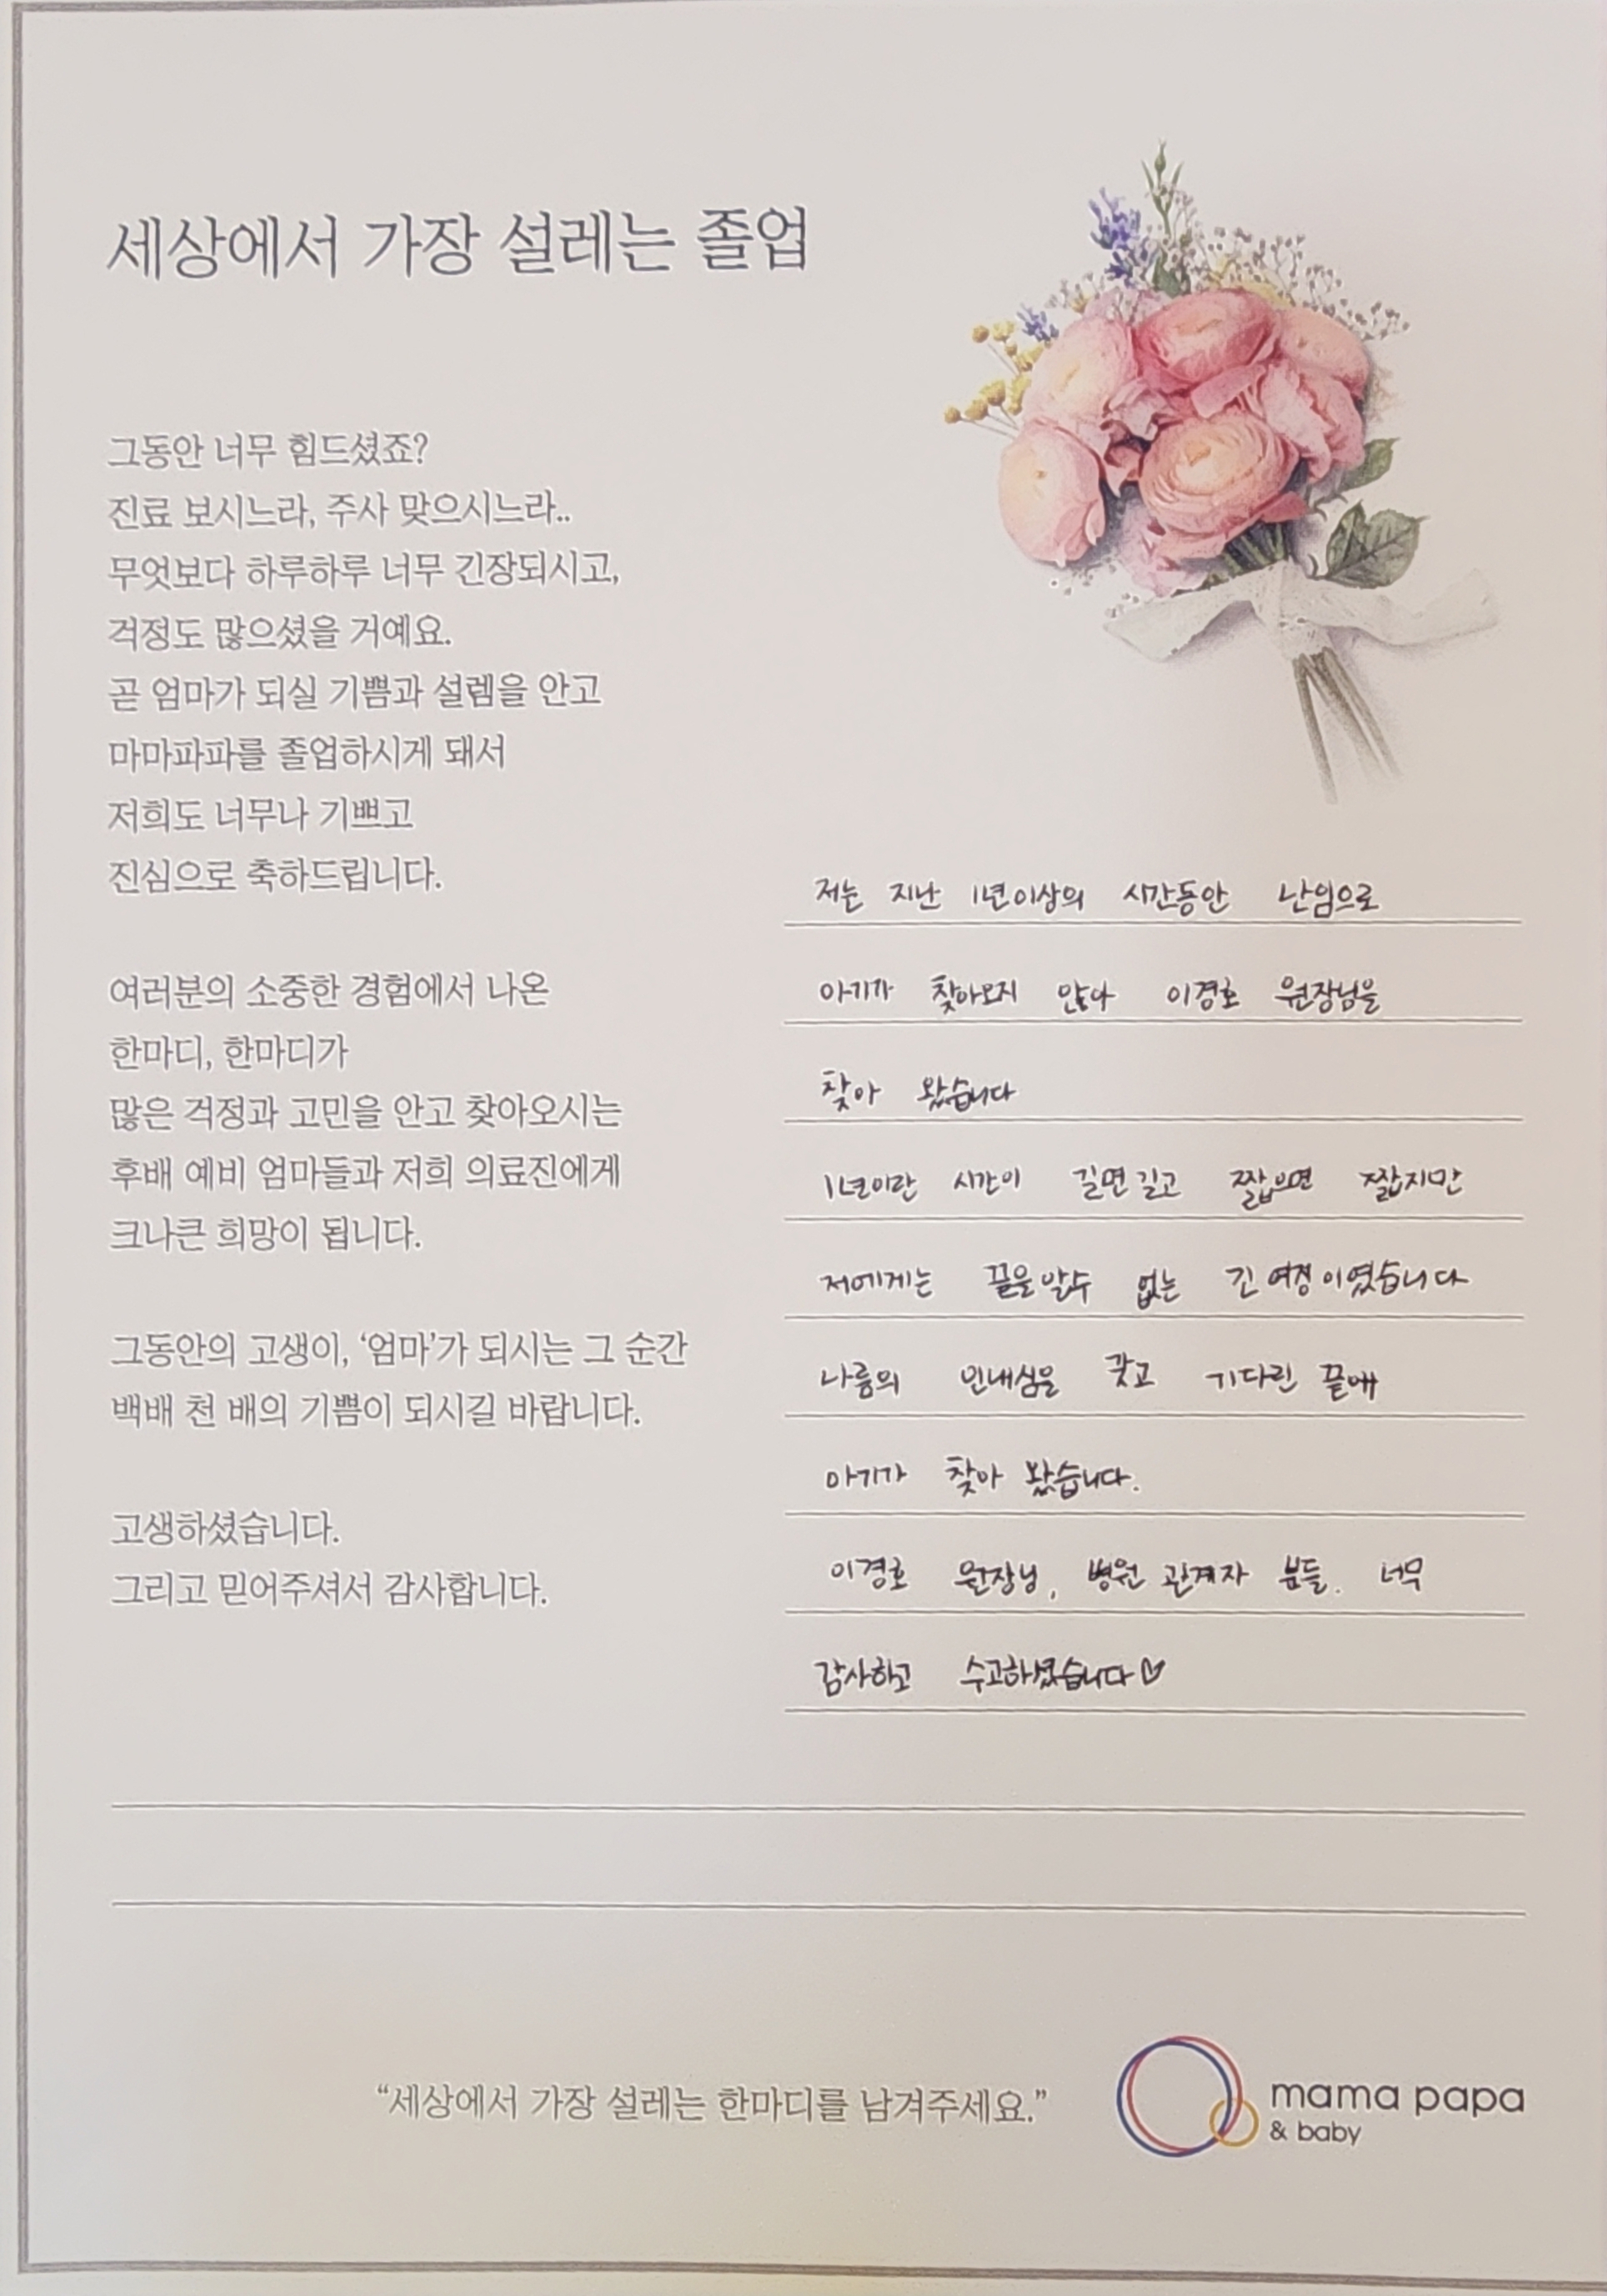 세상에서 가장 설레는 졸업
그동안 너무 힘드셨죠?
진료 보시느라, 주사 맞으시느라..
무엇보다 하루하루 너무 긴장되시고,
걱정도 많으셨을 거예요.
곧 엄마가 되실 기쁨과 설렘을 안고
마마파파를 졸업하시게 돼서
저희도 너무나 기쁘고
진심으로 축하드립니다.
여러분의 소중한 경험에서 나온
한마디, 한마디가
많은 걱정과 고민을 안고 찾아오시는
후배 예비 엄마들과 저희 의료진에게
크나큰 희망이 됩니다.
그동안의 고생이, ‘엄마’가 되시는 그 순간
백배 천 배의 기쁨이 되시길 바랍니다.
고생하셨습니다.
그리고 믿어주셔서 감사합니다.
저는 지난 1년이상의 시간동안 난임으로
아기가 찾아오지 않아 이경호 원장님을
찾아 왔습니다
1년이란 시간이 길면길고 짧으면 짧지만
저에게는 끝을알수 없는 긴 여정이였습니다
나름의 인내심을 갖고 기다린 끝에
아기가 찾아 왔습니다.
이경호 원장님, 병원 관계자 분들. 너무
감사하고 수고하셨습니다♡
“세상에서 가장 설레는 한마디를 남겨주세요.”
mama papa
& baby